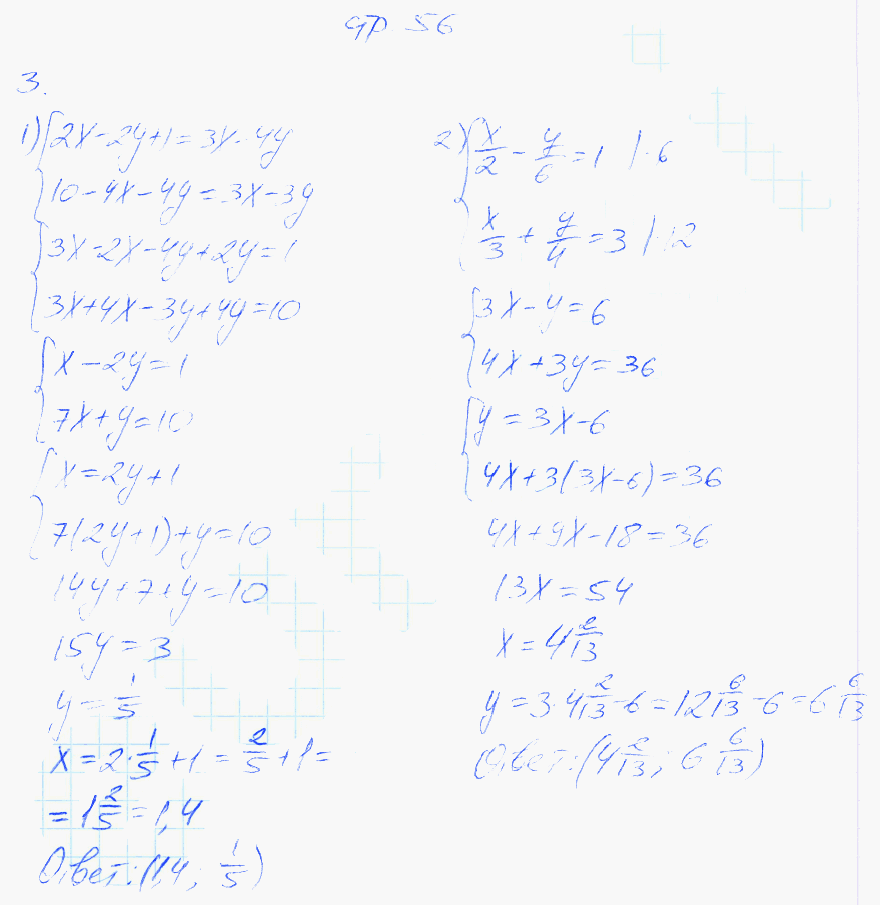 стр 56
3.
1) { 2x-2y+1=3x-4y
10-4x-4y=3x-3y
{ 3x-2x-4y+2y=1
3x+4x-3y+4y=10
{ x-2y=1
7x+y=10
{ x=2y+1
7(2y+1)+y=10
14y+7+y=10
15y=3
y=1/5
x=2·1/5+1=2/5+1=
=1 2/5=1,4
Ответ:(1,4; 1/5)
2) { x/2 - y/6 = 1 |·6
x/3 + y/4 = 3 |·12
{ 3x-y=6
4x+3y=36
{ y=3x-6
4x+3(3x-6)=36
4x+9x-18=36
13x=54
x=4 2/13
y=3·4 2/13-6=12 6/13-6=6 6/13
Ответ:(4 2/13; 6 6/13)